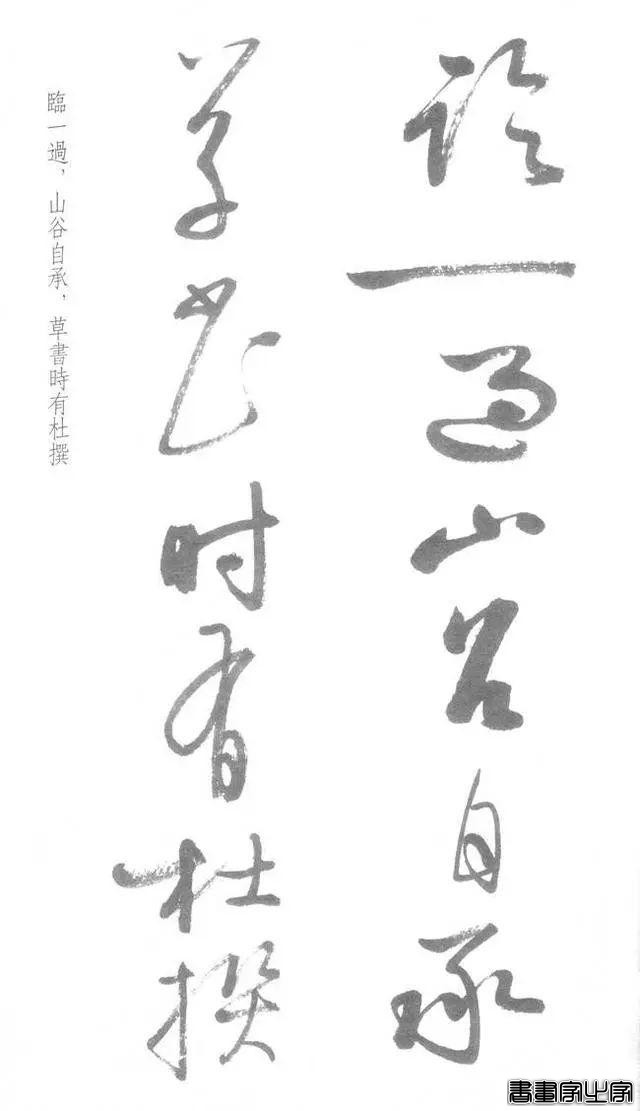 臨一過山谷自承
草書時有杜撰
臨一過，山谷自承，草書時有杜撰
書畫家之家